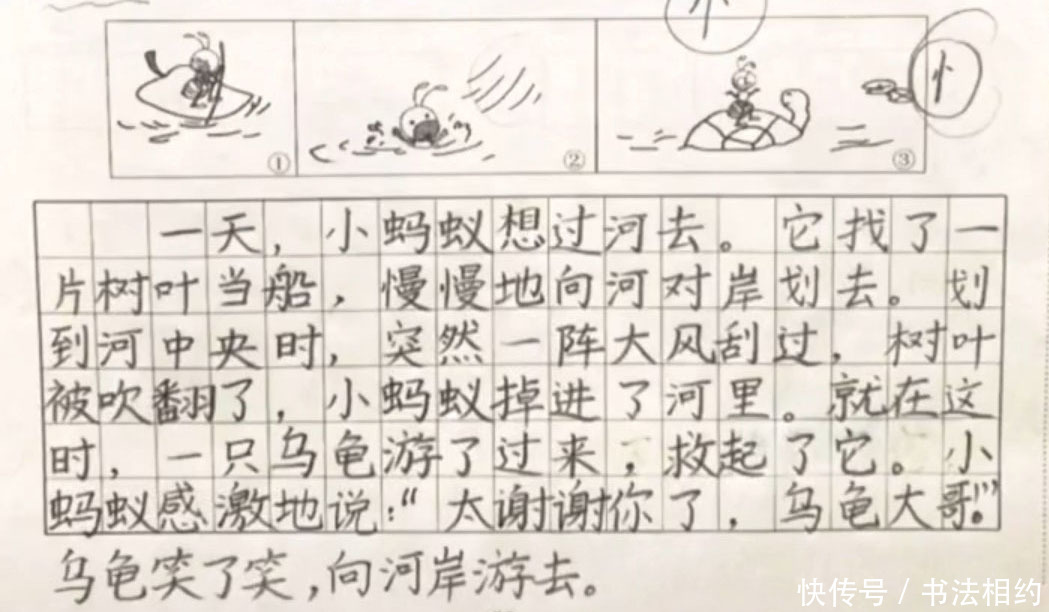 ①
②
③
一天，小蚂蚁想过河去。它找了一
片树叶当船，慢慢地向河对岸划去。划
到河中央时，突然一阵大风刮过，树叶
被吹翻了，小蚂蚁掉进了河里。就在这
时，一只乌龟游了过来，救起了它。小
蚂蚁感激地说：“太谢谢你了，乌龟大哥！”
乌龟笑了笑，向河岸游去。
快传号 / 书法相约